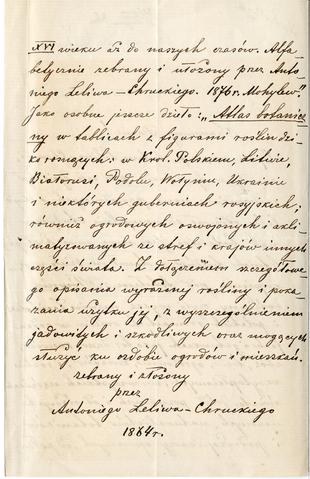 XVI wieku aż do naszych czasów. Alfa-
betycznie zebrany i ułożony przez Anto-
niego Leliwa-Chruckiego. 1876 r. Mohylew"
Jako osobne jeszcze dzieło: „Atlas botanicz
ny w tablicach z figurami roślin dzi-
ko rosnących: w Król. Polskiem, Litwie,
Białorusi, Podolu, Wołyniu, Ukrainie
i niektórych guberniach rosyjskich;
również ogrodowych oswojonych i akli-
matyzowanych ze stref i krajów innych
części świata. Z dołączeniem szczegółowe-
go opisania wyrażonej rośliny i poka-
zania użytku jej, z wyszczególnieniem
jadowitych i szkodliwych oraz mogących
służyć ku ozdobie ogrodów i mieszkań.
zebrany i złożony
przez
Antoniego Leliwa-Chruckiego
1864 r.